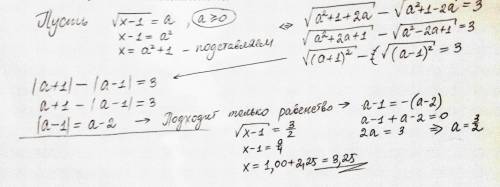 Пусть √(x-1) = a, a ≥ 0
x-1 = a²
x = a²+1 - подставляем ⇔ √(a²+1+2a) - √(a²+1-2a) = 3
√(a²+2a+1) - √(a²-2a+1) = 3
√((a+1)²) - √((a-1)²) = 3
|a+1| - |a-1| = 3
a+1 - |a-1| = 3
|a-1| = a-2 → Подходит только равенство → a-1 = -(a-2)
a-1+a-2=0
2a = 3 ⇒ a = 3/2
√(x-1) = 3/2
x-1 = 9/4
x = 1,00+2,25 = 3,25